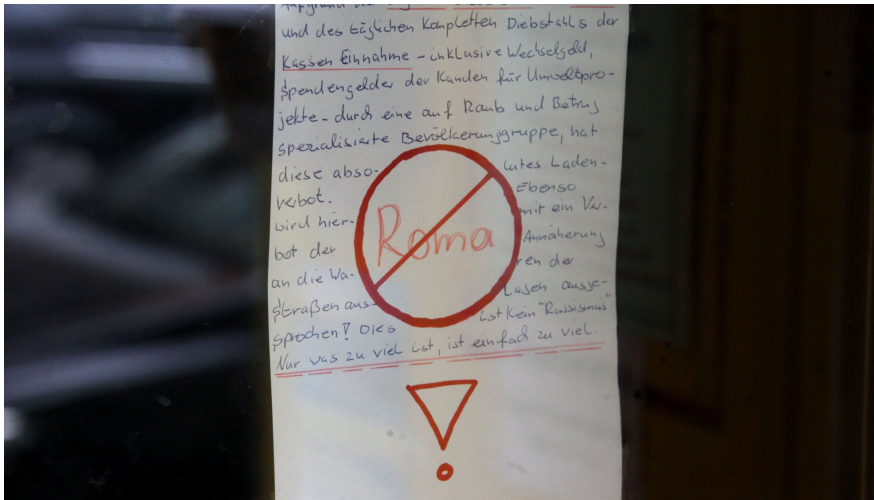 und des täglichen kompletten Diebstahls der
Kassen Einnahme - inklusive Wechselgeld,
Spendengelder der Kunden für Umweltpro-
jekte - durch eine auf Raub und Betrug
spezialisierte Bevölkerungsgruppe, hat
diese abso- lutes Laden-
verbot. Ebenso
wird hier- mit ein Ver-
bot der Annäherung
an die Wa- ren der
Straßen aus- Lagen ausge-
sprochen! Dies ist kein "Rassismus"
Nur was zu viel ist, ist einfach zu viel.
Roma